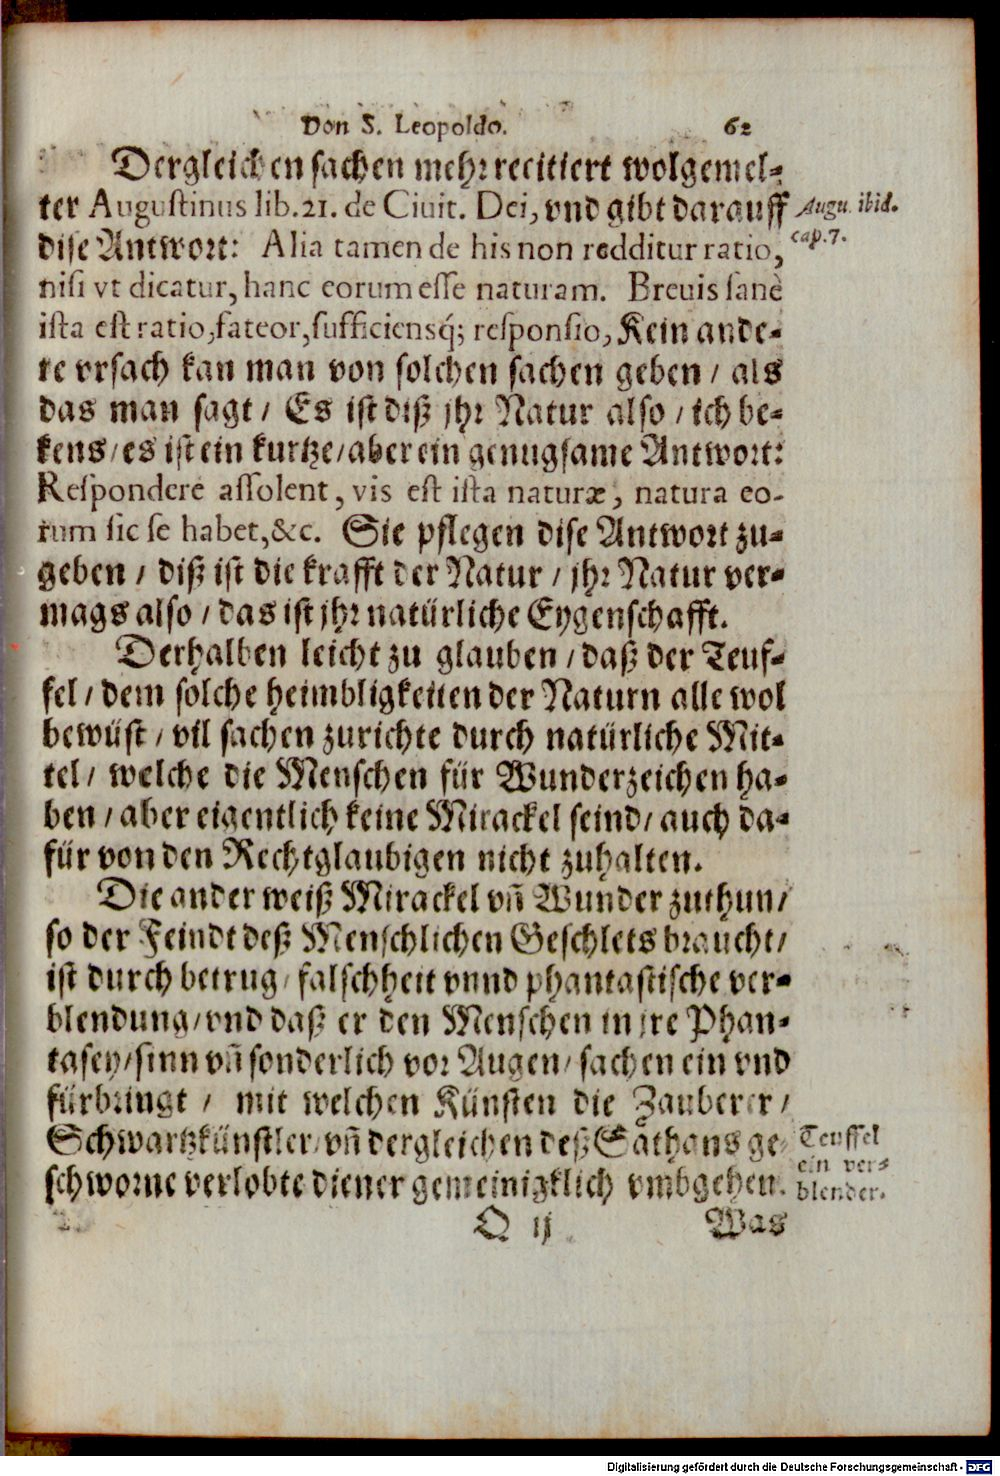 Von S. Leopoldo. 62
Dergleichen sachen mehr recitiert wolgemel-
ter Augustinus lib. 21. de Ciuit. Dei, vnd gibt darauff
Augu. ibid.
cap. 7.
dise Antwort: Alia tamen de his non redditur ratio,
nisi vt dicatur, hanc eorum esse naturam. Breuis sanè
ista est ratio, fateor, sufficiensq́; responsio, Kein ande-
re vrsach kan man von solchen sachen geben / als
das man sagt / Es ist diß jhr Natur also / ich be-
kens / es ist ein kurtze / aber ein genugsame Antwort:
Respondere assolent, vis est ista naturæ, natura eo-
rum sic se habet, &c. Sie pflegen dise Antwort zu-
geben / diß ist die krafft der Natur / jhr Natur ver-
mags also / das ist jhr natürliche Eygenschafft.
Derhalben leicht zu glauben / daß der Teuf-
fel / dem solche heimbligkeiten der Naturn alle wol
bewüst / vil sachen zurichte durch natürliche Mit-
tel / welche die Menschen für Wunderzeichen ha-
ben / aber eigentlich keine Mirackel seind / auch da-
für von den Rechtglaubigen nicht zuhalten.
Die ander weiß Mirackel vn̄ Wunder zuthun /
so der Feindt deß Menschlichen Geschlets braucht /
ist durch betrug / falschheit vnnd phantastische ver-
blendung / vnd daß er den Menschen in jre Phan-
tasey / sinn vn̄ sonderlich vor Augen / sachen ein vnd
fürbringt / mit welchen Künsten die Zauberer /
Schwartzkünstler / vn̄ dergleichen deß Sathans ge-
schworne verlobte diener gemeinigklich vmbgehen.
Teuffel
ein ver-
blender.
Q ij Was
Digitalisierung gefördert durch die Deutsche Forschungsgemeinschaft - DFG